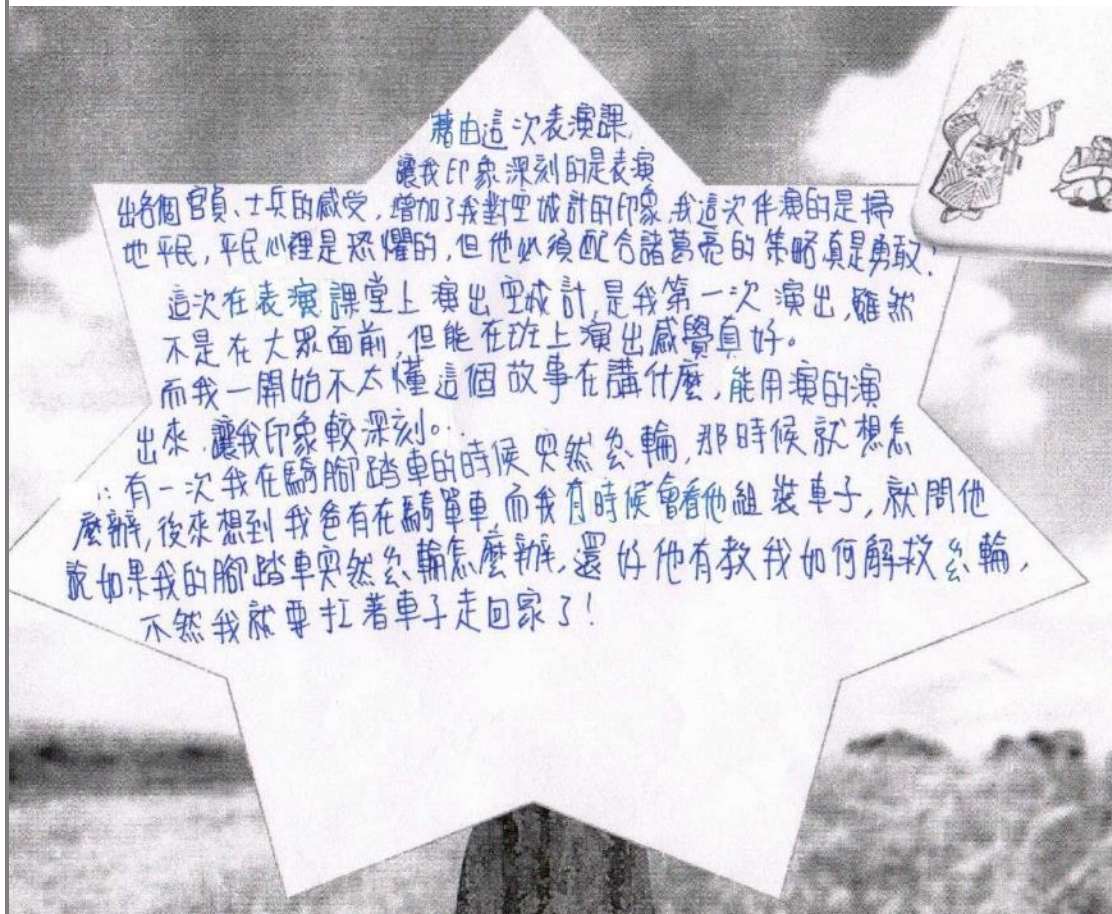 藉由這次表演課,
讓我印象深刻的是表演
出各個官員、士兵的感受,增加了我對空城計的印象,我這次伴演的是掃
地平民,平民心裡是恐懼的,但他必須配合諸葛亮的策略真是勇敢!
這次在表演課堂上演出空城計,是我第一次演出,雖然
不是在大眾面前,但能在班上演出感覺真好。
而我一開始不太懂這個故事在講什麼,能用演的演
出來,讓我印象較深刻。
有一次我在騎腳踏車的時候突然幺輪,那時候就想怎
麼辦,後來想到我爸有在騎單車,而我有時候會看他組裝車子,就問他
說如果我的腳踏車突然幺輪怎麼辦,還好他有教我如何解救幺輪,
不然我就要扛著車子走回家了!